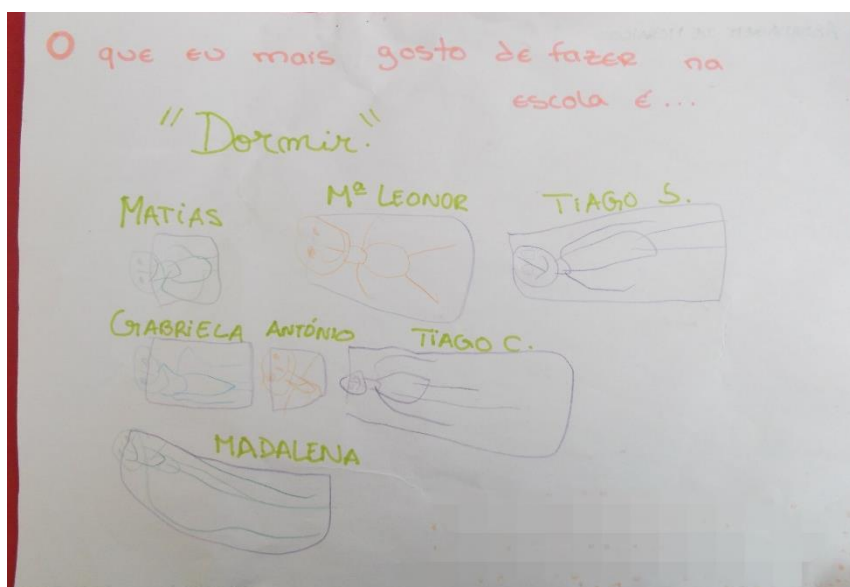 O que eu mais gosto de fazer na
escola é...
"Dormir."
MATIAS Mª LEONOR TIAGO S.
GABRIELA ANTÓNIO TIAGO C.
MADALENA